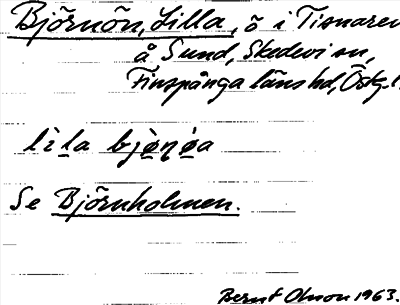 Björnön, Lilla, ö i Tisnaren
å Sund, Skedevi sn,
Finspånga läns hd, Östg.l.
lìla bjö̀ṇö́a
Se Björnholmen.
Bernt Olsson 1963.